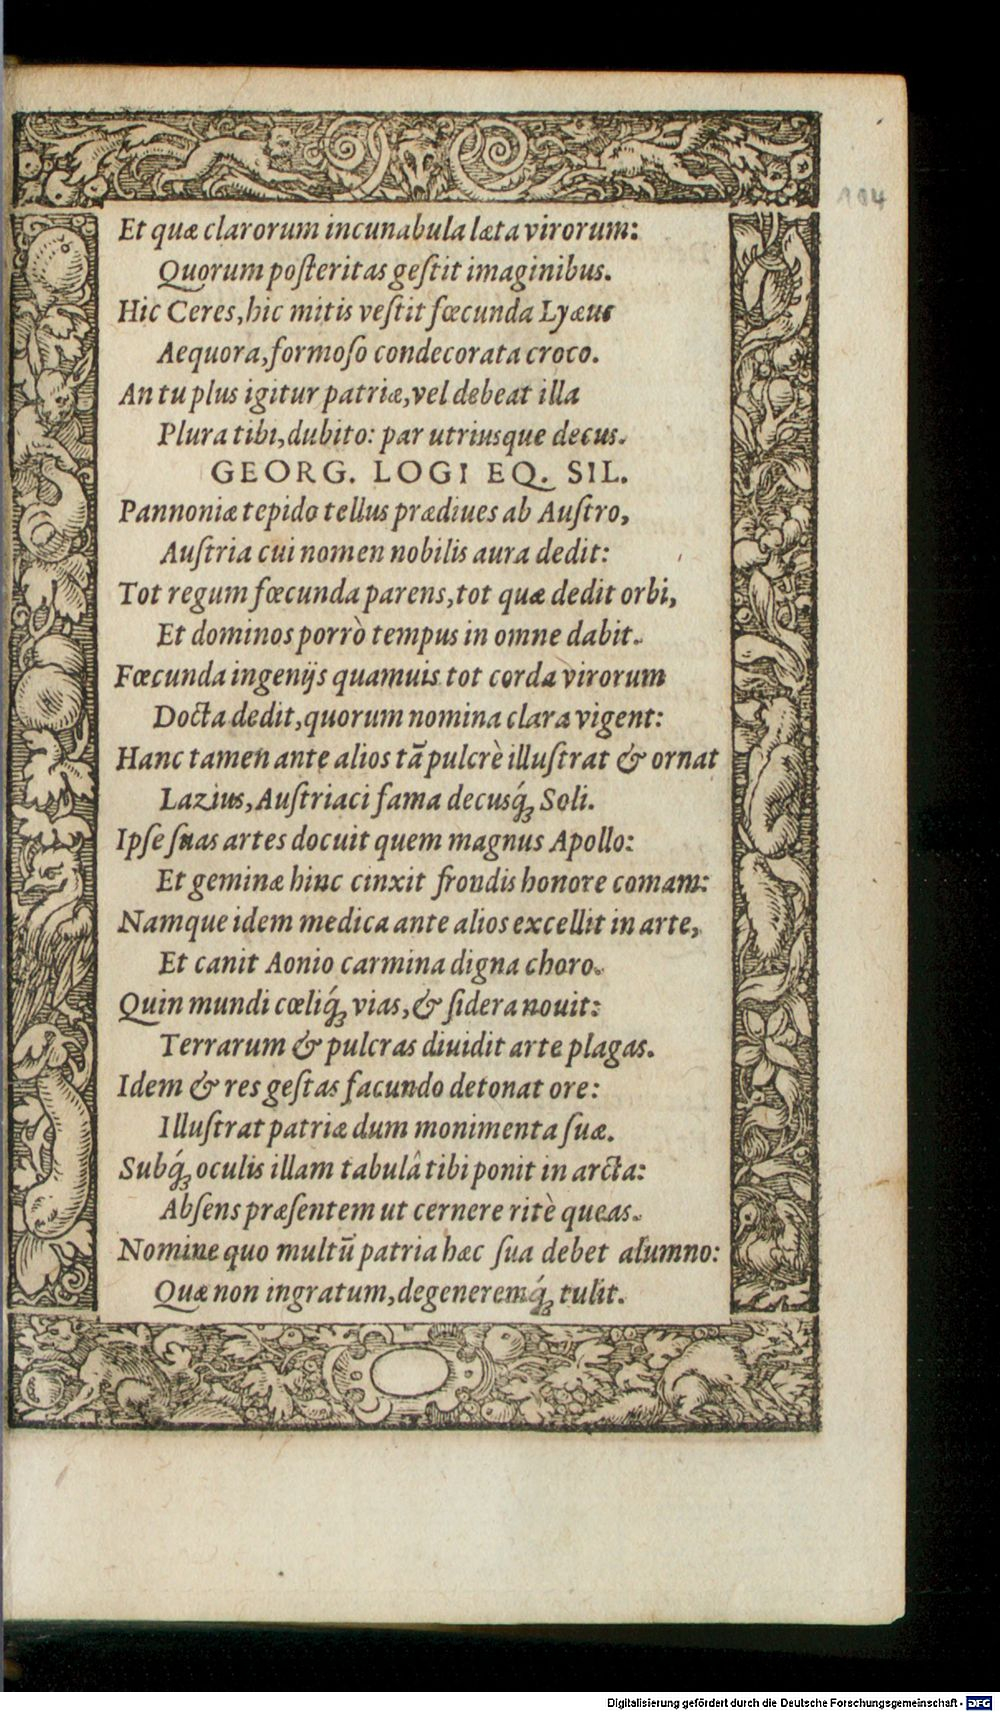 104
Et quæ clarorum incunabula læta virorum:
Quorum posteritas gestit imaginibus.
Hic Ceres, hic mitis vestit fœcunda Lyæus
Aequora, formoso condecorata croco.
An tu plus igitur patriæ, vel debeat illa
Plura tibi, dubito: par utriusque decus.
GEORG. LOGI EQ. SIL.
Pannoniæ tepido tellus prædiues ab Austro,
Austria cui nomen nobilis aura dedit:
Tot regum fœcunda parens, tot quæ dedit orbi,
Et dominos porrò tempus in omne dabit.
Fœcunda ingenijs quamuis tot corda virorum
Docta dedit, quorum nomina clara vigent:
Hanc tamen ante alios tā pulcrè illustrat & ornat
Lazius, Austriaci fama decusq́; Soli.
Ipse suas artes docuit quem magnus Apollo:
Et geminæ hinc cinxit frondis honore comam:
Namque idem medica ante alios excellit in arte,
Et canit Aonio carmina digna choro.
Quin mundi cœliq́; vias, & sidera nouit:
Terrarum & pulcras diuidit arte plagas.
Idem & res gestas facundo detonat ore:
Illustrat patriæ dum monimenta suæ.
Subq́; oculis illam tabulâ tibi ponit in arcta:
Absens præsentem ut cernere ritè queas.
Nomine quo multū patria hæc sua debet alumno:
Quæ non ingratum, degeneremq́; tulit.
Digitalisierung gefördert durch die Deutsche Forschungsgemeinschaft - DFG